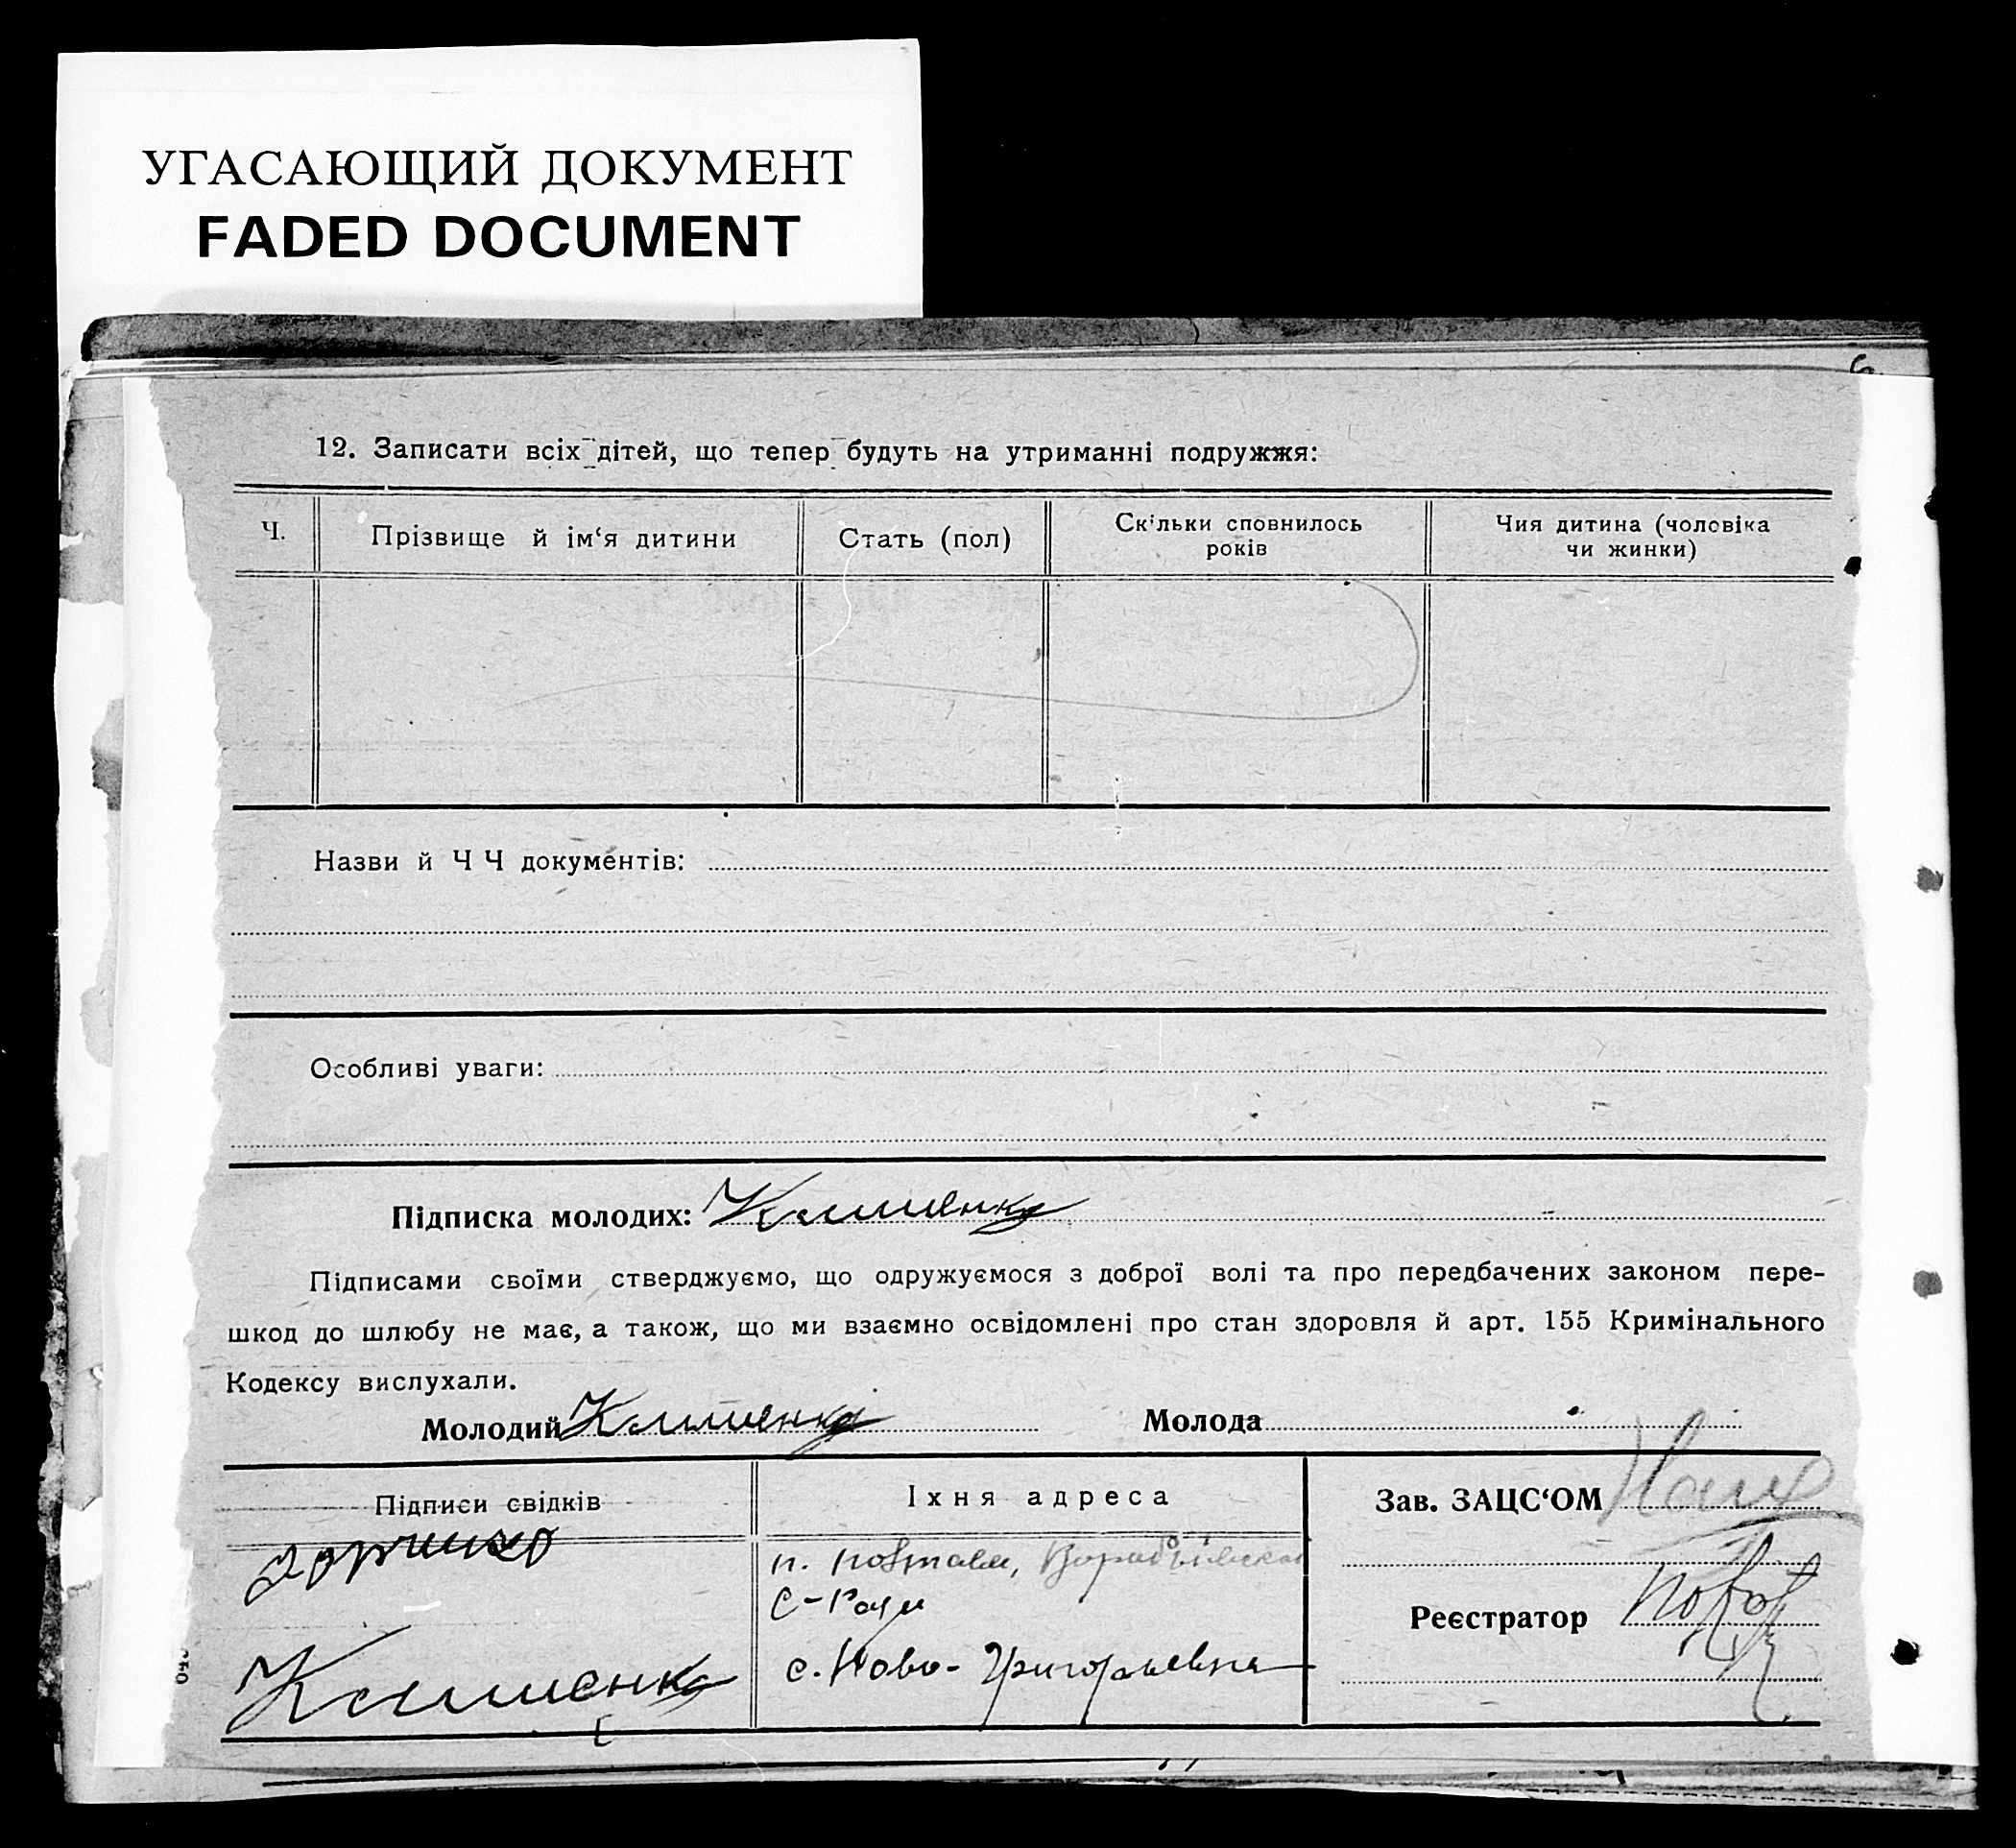 УГАСАЮЩИЙ ДОКУМЕНТ
FADED DOCUMENT
12. Записати всіх дітей, що тепер будуть на утриманні подружжя:
Ч.
Прізвище й ім‘я дитини
Стать (пол)
Скільки сповнилось
років
Чия дитина (чоловіка
чи жинки)
Назви й Ч Ч документів:
Особливі уваги:
Підписка молодих:
Підписами своїми стверджуємо, що одружуємося з доброї волі та про передбачених законом пере-
шкод до шлюбу не має, а також, що ми взаємно освідомлені про стан здоровля й арт. 155 Кримінального
Кодексу вислухали.
Молодий
Молода
Підписи свідків
Їхня адреса
с. Ново-Григорьевка
Зав. ЗАЦС‘ОМ
Реєстратор